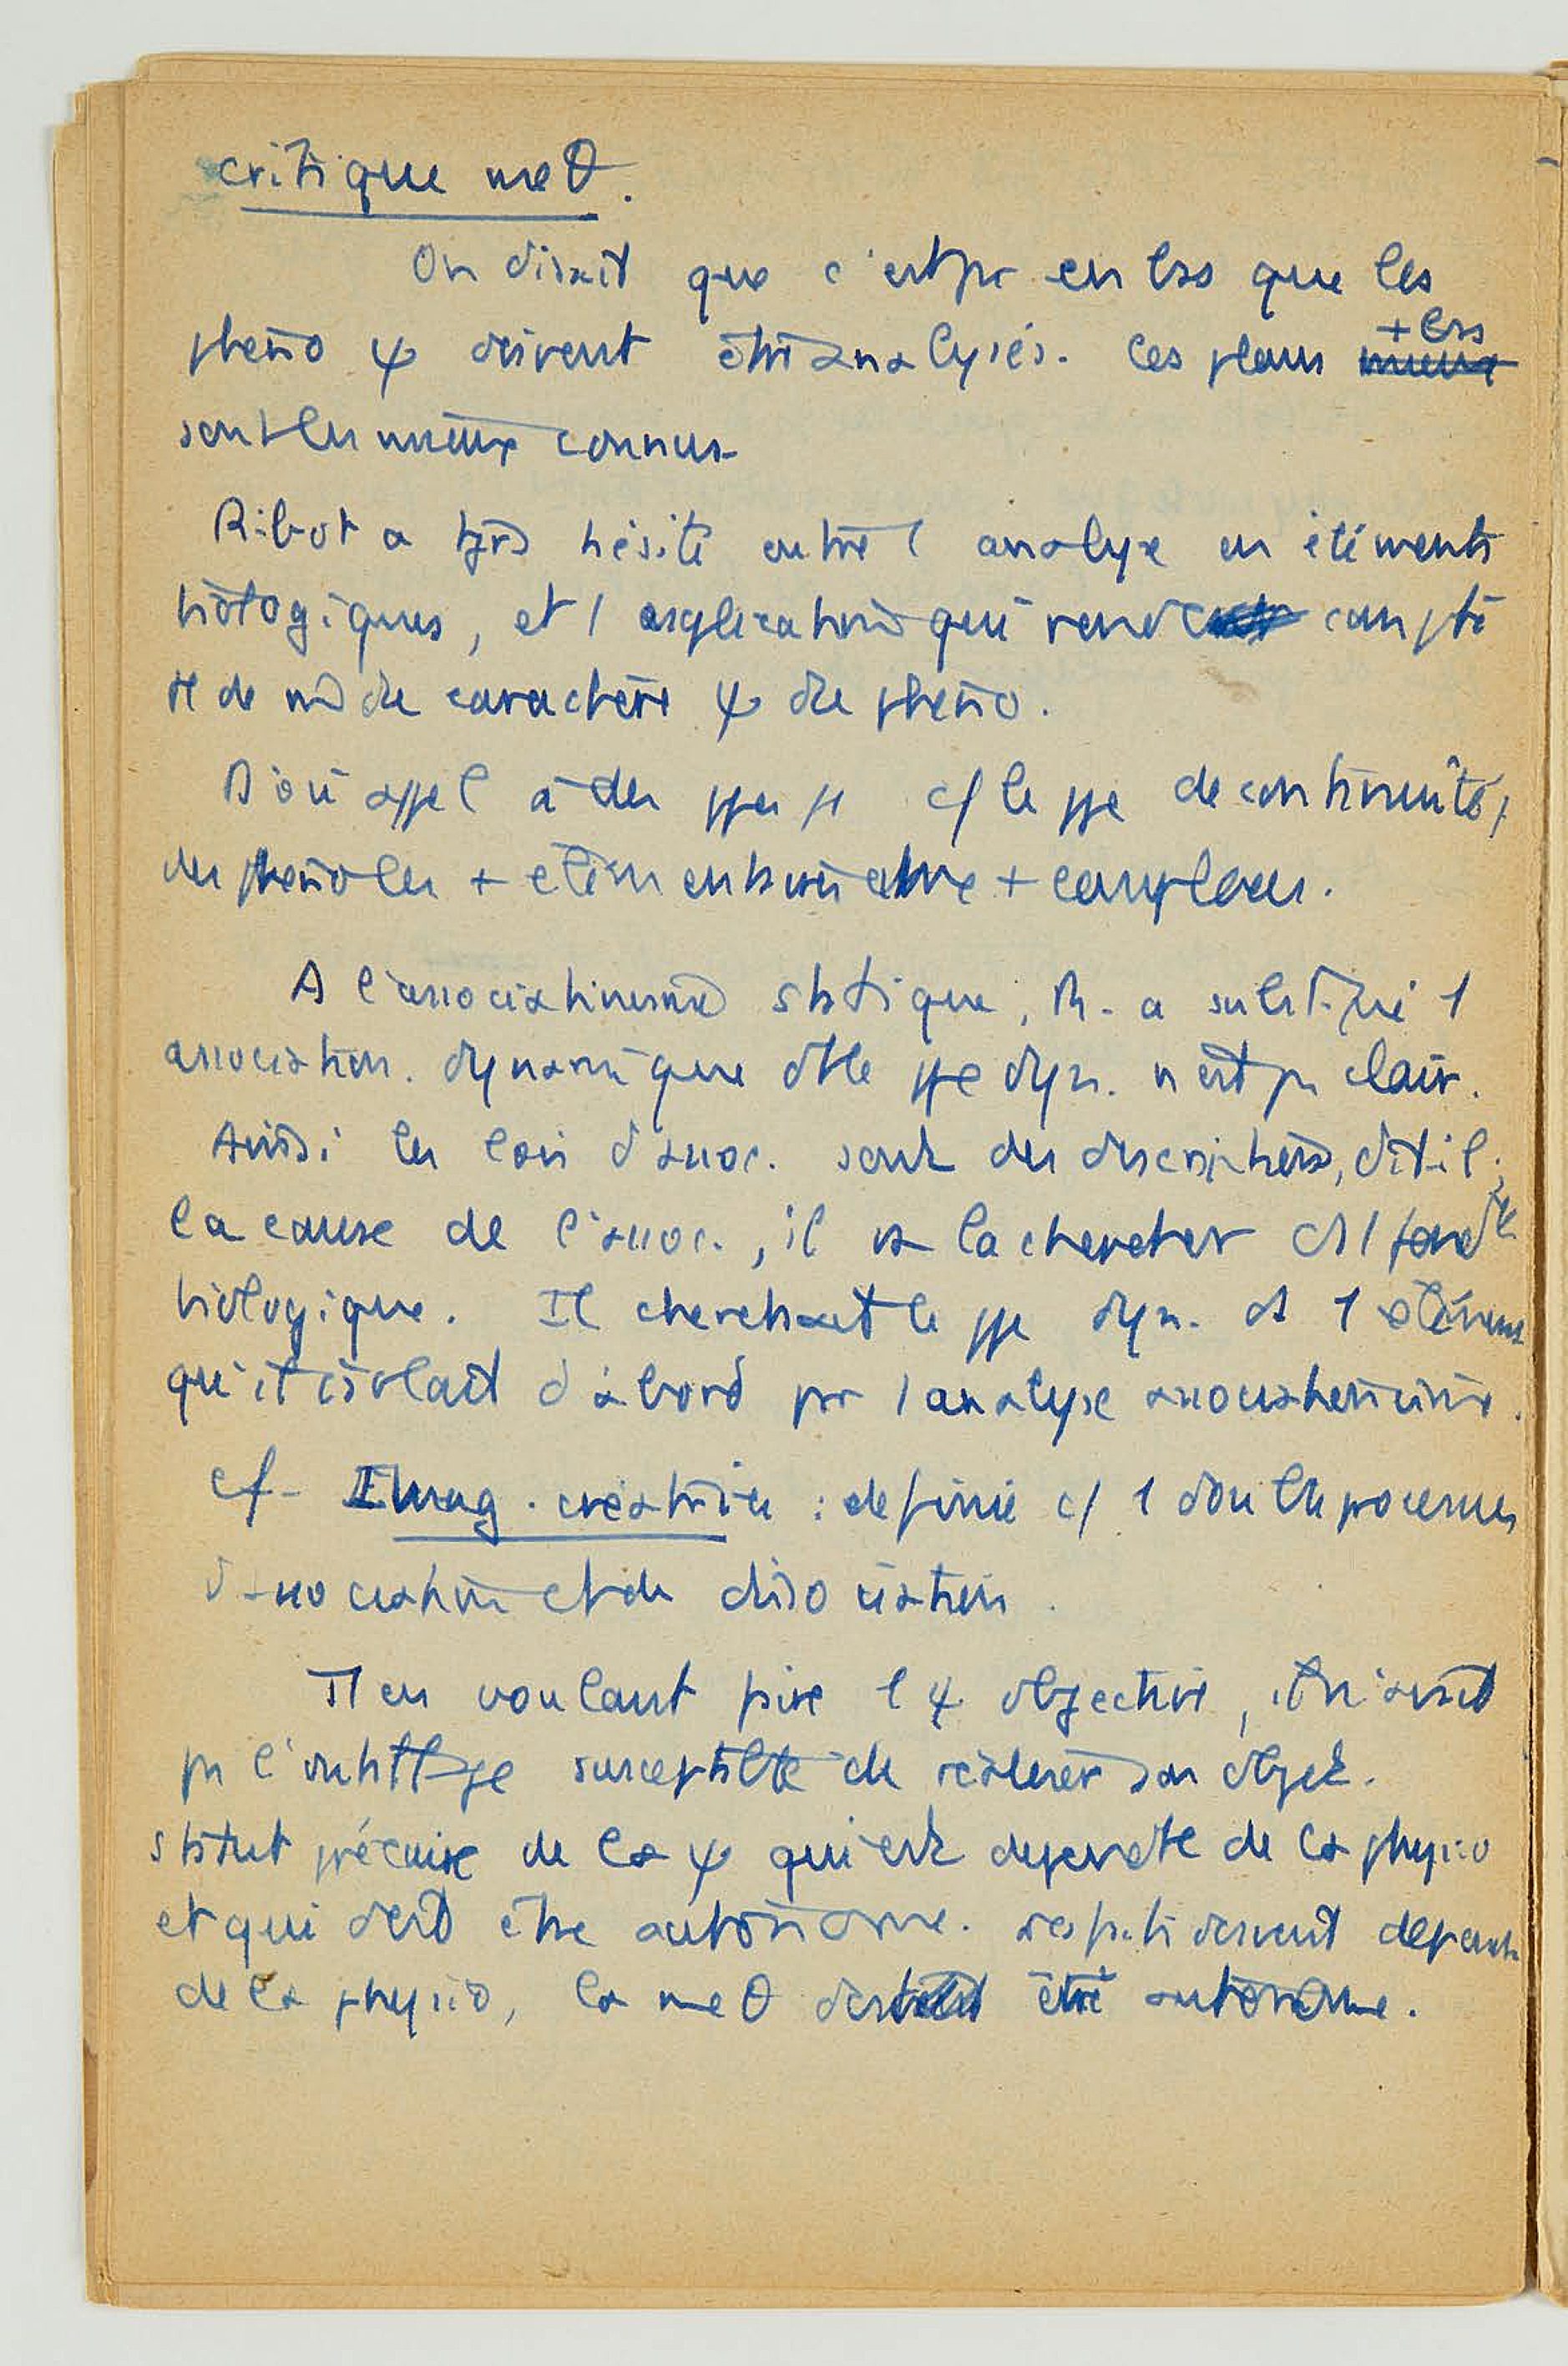 critique meθ.
On disait que c'est pr en bas que les
phéno ψ doivent être analysés. Les plans + bas
sont les mieux connus
Ribot a tjrs hésité entre l analyse en éléments
biologiques, et l explication qui rend compte
de du caractère ψ du phéno.
D'où appel à des ppes c/ le ppe de continuité,
des phéno les + élémentaires + complexes.
A l'associationisme statique, R. a substitué 1
association. dynamique dt le ppe dyn. n'est pas clair.
Ainsi les lois d'assoc. sont des descriptions, dit-il ;
la cause de l'assoc., il va la chercher ds l
biologique. Il cherchait le ppe dyn. ds 1 élément
qu'il isolait d'abord par l analyse associationiste.
cf- Imag. créatrice : définie c/ 1 double processus
d'association et de dissociation.
en voulant faire 1 ψ objective, il n'avait
pas l'outillage susceptible de réaliser son objet.
Statut précaire de la ψ qui est dépendte de la physio
et qui doit être autonome. doivent
de la physio, la meθ doit être autonome.